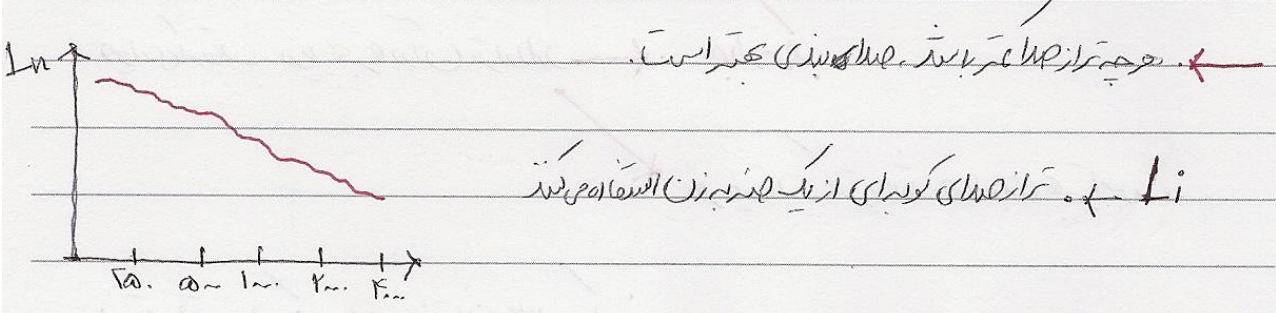 هرچه تراز صدا کمتر باشد، صدابندی بهتر است.
Ln
Li ← تراز صدای کوبه‌ای از یک ضربه زن استفاده می‌کنند
۲۵۰ ۵۰۰ ۱۰۰۰ ۲۰۰۰ ۴۰۰۰